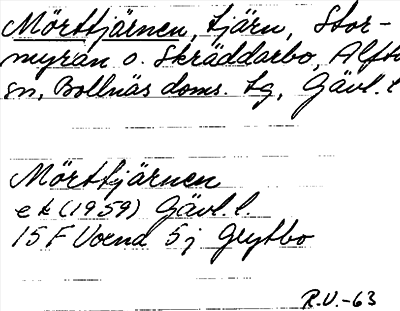 Mörttjärnen, tjärn, Stor-
myran o. Skräddarbo, Alfta
sn, Bollnäs doms. tg, Gävl. l.
Mörttjärnen
ek (1959) Gävl. l.
15 F Voxna 5j Grytbo
R.V.-63